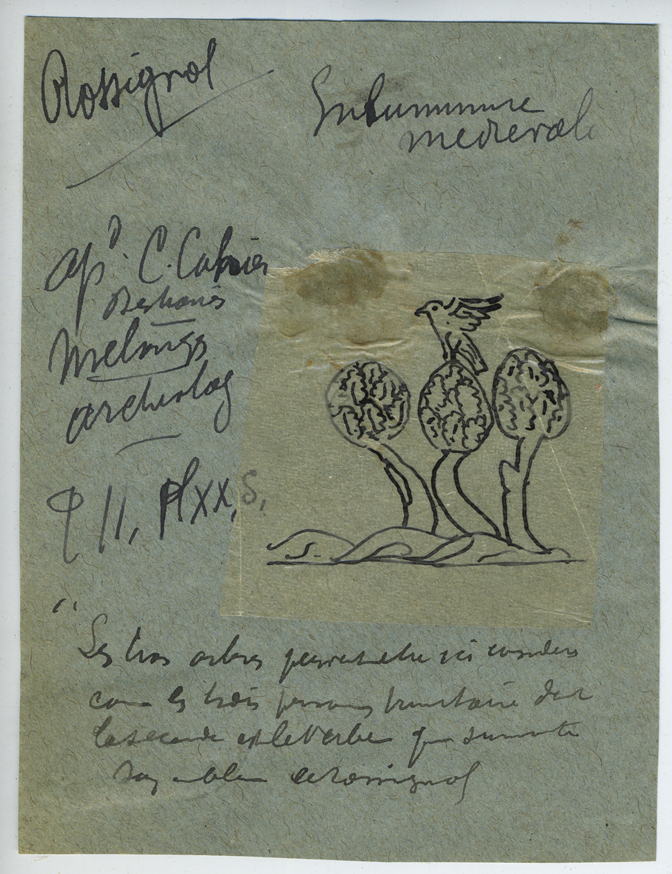 Rossignol
Enluminure
medievale
ap. C. Cahier
Bestiaires
Melanges
archeolog
t II, Pl XX, S.
" Les trois arbres peuvent etre ici consideres
comme les trois personnes trinitaires dont
la seconde est le Verbe que surmonte
le Rossignol